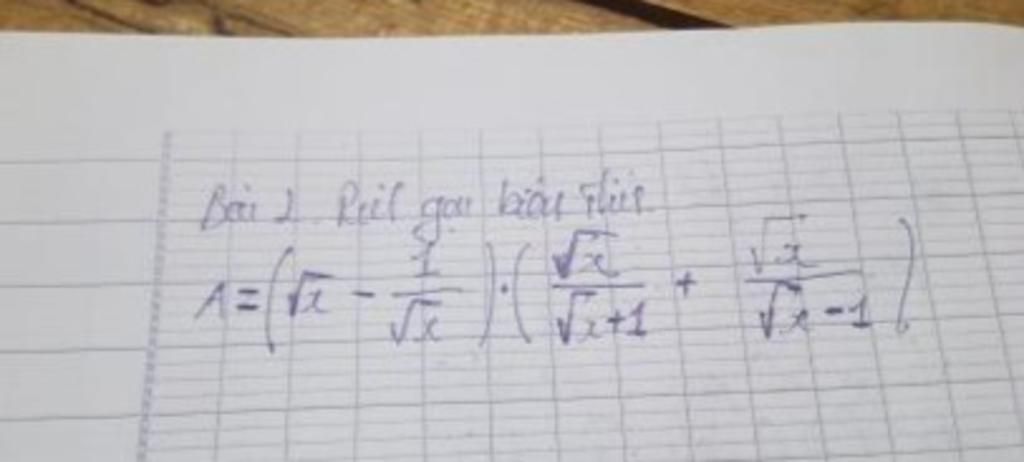 Bài 2 Rút gọn biểu thức
A = (√x - 1/√x) · (√x/√x+1 + √x/√x-1)